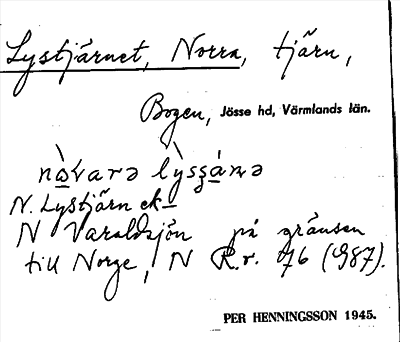 Lystjärnet, Norra, tjärn,
Bogen, Jösse hd, Värmlands län.
nòvarə lỳssánə
N. Lystjärn ek—
N Varaldsjön på gränsen
till Norge, N R.r. 76 (987).
PER HENNINGSSON 1945.